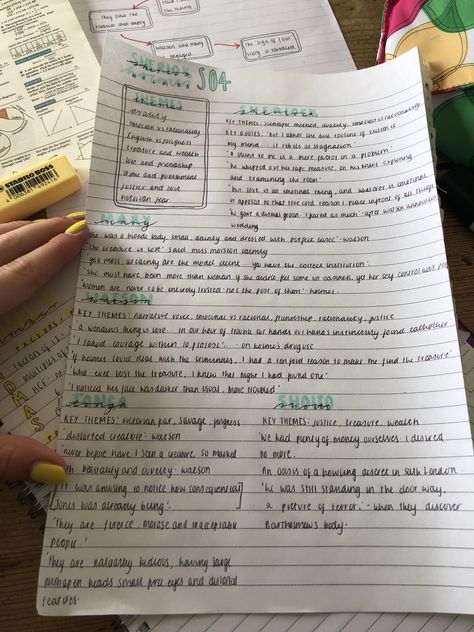 They find the treasure chest empty
the treasure
Watson and Mary engaged
The Sign of Four Story is revealed
STABILO BOSS
SHERLOCK
HOLMES SO4
THEMES
duality
emotion vs rationality
English vs foreigness
treasure and wealth
love and friendship
crime and punishment
justice and
victorian fear
SHERLOCK
KEY THEMES: scientific method, duality, emotion vs rationality
KEY QUOTES: 'but I abhor the dull routine of existence
my mind... it rebels at stagnation'
'A client to me is a mere factor in a problem'
'he whipped out his tape measure, on his knees, exploring
and examining the room'
'but love is an emotional thing, and whatever is emotional
is opposed to that true cold reason I place above all things'
'he gave a dismal groan. I feared as much' - after watson announces
wedding
MARY
'She was a blonde lady, small, dainty and dressed with perfect taste' - watson
'the treasure is lost' said miss morstan calmly
'you most certainly are the model client... you have the correct intuition'
'She must have been more than woman if she didn't feel some uneasiness, yet her self control was perfect
'women are never to be entirely trusted - not the best of them' - holmes.
WATSON
KEY THEMES: narrative voice, emotional vs rational, friendship, rationality, justice
'a wondrous thing is love... in our hour of trouble our hands instinctively found eachother'
'I lacked courage within to protest'... on holmes's drug use
'if holmes could deal with the criminals, I had a tenfold reason to make me find the treasure'
'who ever lost the treasure, I knew that night I had found one'
'I noticed his face was darker than usual, more troubled'
TONGA
KEY THEMES: victorian fear, savage, foreigness
'distorted creature' - watson
'never before have I seen a creature so marked
with bestiality and cruelty' - watson
'it was amusing to notice how consequencial
Jones was already being'
'They are fierce, morose and intractable
people'
'They are naturally hideous, having large
mishapen heads small fierce eyes and distorted
features.
SHOLTO
KEY THEMES: justice, treasure, wealth
'We had plenty of money ourselves. I desired
no more.
'An oasis of a howling desert in south London
'he was still standing in the door way,
a picture of terror' - when they discover
Bartholomew's body.